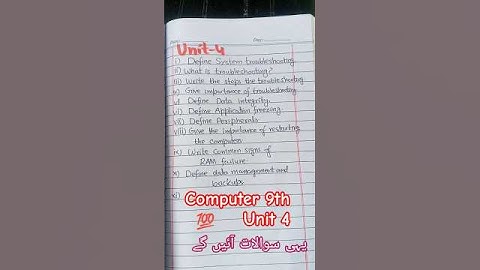 Unit-4
i) Define System troubleshooting
ii) What is troubleshooting?
iii) Write the steps the troubleshooting
iv) Give importance of troubleshooting
v) Define Data Integrity.
vi) Define Application freezing.
vii) Define Peripherals
viii) Give the importance of restarting
the computer
ix) Write Common signs of
RAM failure
x) Define data management and
backups
xi)
Computer 9th
💯 Unit 4
یہی سوالات آئیں گے